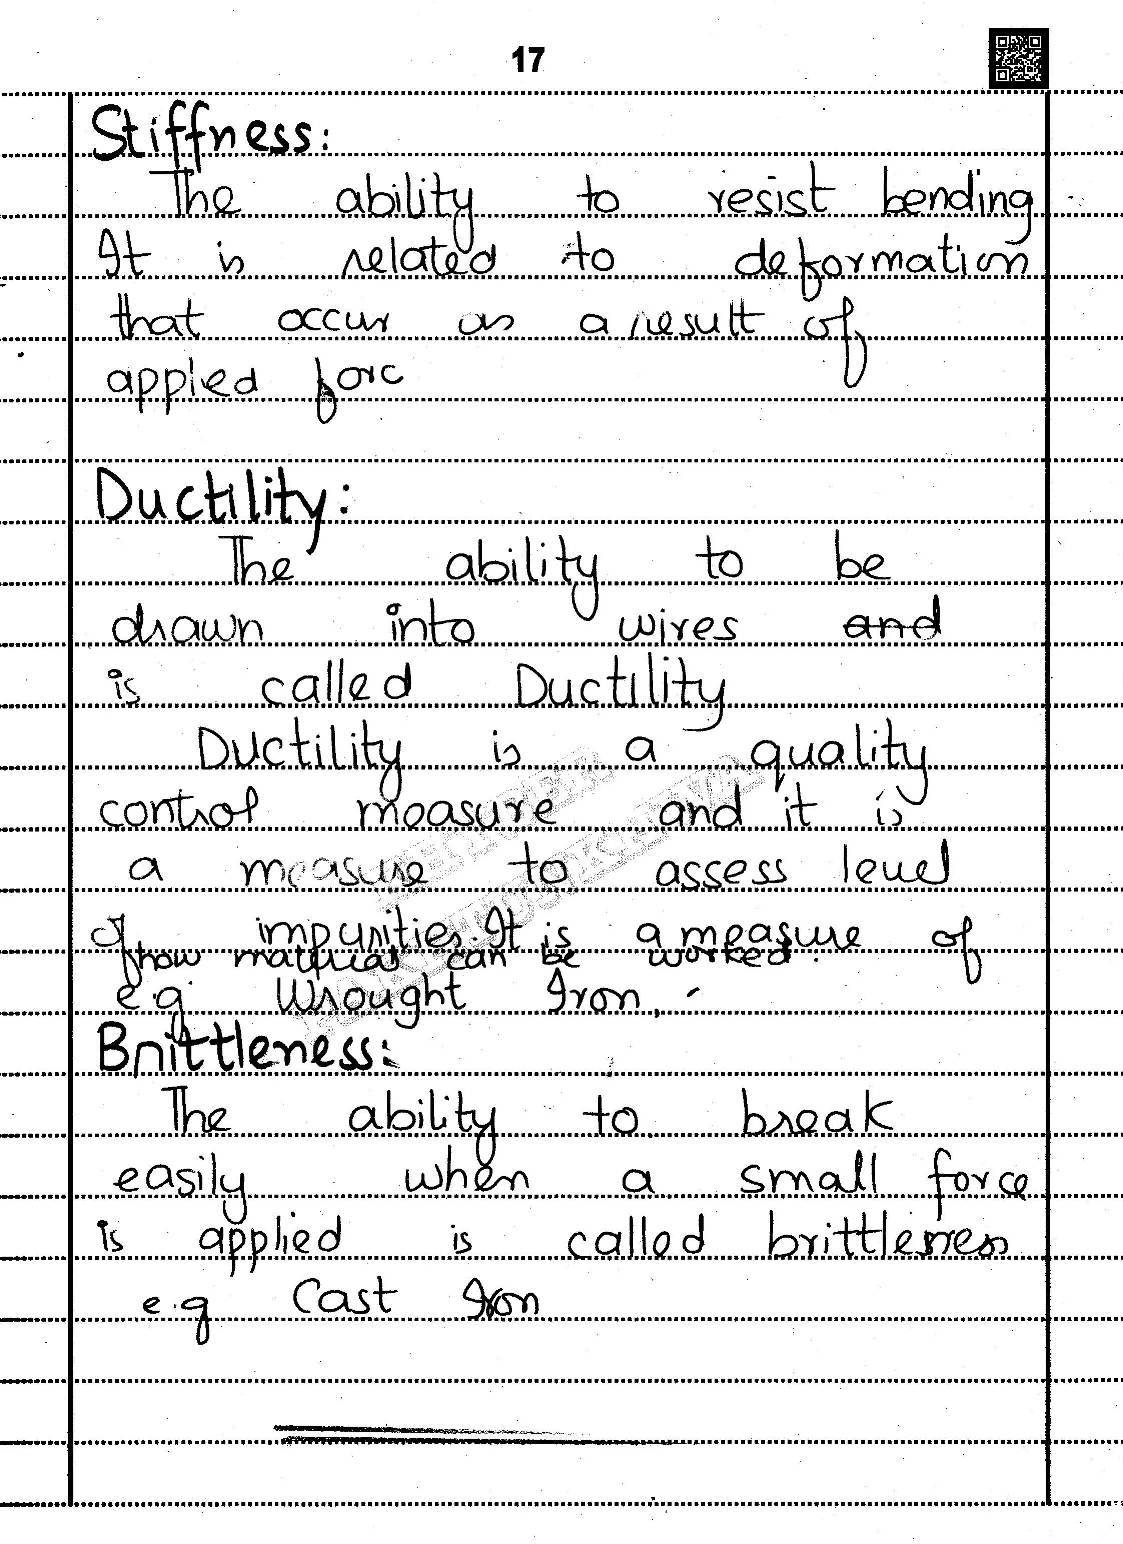 17
Stiffness:
The ability to resist bending
It is related to deformation
that occur as a result of
applied forc
Ductility:
The ability to be
drawn into wires and
is called Ductility
Ductility is a quality
control measure and it is
a measure to assess level
of impurities. It is a measure of
how material can be worked.
e.g. Wrought Iron.
Brittleness:
The ability to break
easily when a small force
is applied is called brittleness
e.g Cast Iron